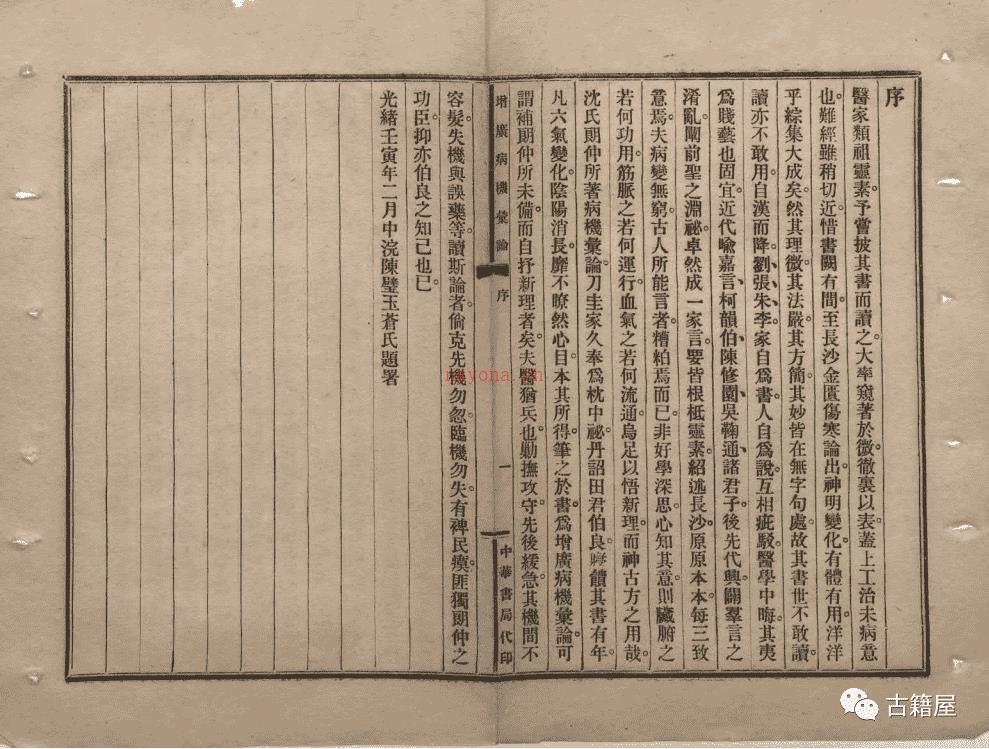 序
醫家類祖靈素。予嘗披其書而讀之。大率窺著於微。徹裏以表。蓋上工治未病意
也。難經雖稍切近。惜書闕有間。至長沙金匱傷寒論出。神明變化。有體有用。洋洋
乎綜集大成矣。然其理微。其法嚴。其方簡。其妙皆在無字句處。故其書世不敢讀。
讀亦不敢用。自漢而降。劉、張、朱、李、家自爲書。人自爲說。互相疵駁。醫學中晦。其夷
爲賤藝也固宜。近代喩嘉言、柯韻伯、陳修園、吳鞠通、諸君子。後先代興。闢羣言之
淆亂。闡前聖之淵祕。卓然成一家言。要皆根柢靈素。紹述長沙。原原本本。每三致
意焉。夫病變無窮。古人所能言者。糟粕焉而已。非好學深思。心知其意。則臟腑之
若何功用。筋脈之若何運行。血氣之若何流通。烏足以悟新理。而神古方之用哉。
沈氏朗仲所著病機彙論。刀圭家久奉爲枕中祕。丹詔田君伯良。晦饋其書有年。
凡六氣變化。陰陽消長。靡不暸然心目。本其所得。筆之於書。爲增廣病機彙論。可
謂補朗仲所未備。而自抒新理者矣。夫醫猶兵也。勦撫攻守。先後緩急。其機間不
容髮。失機與誤藥等。讀斯論者。倘克先機勿忽。臨機勿失。有裨民瘼。匪獨朗仲之
功臣。抑亦伯良之知己也已。
光緒壬寅年二月中浣陳璧玉蒼氏題署
增廣病機彙論
序
一
中華書局代印
nayona.cn
古籍屋